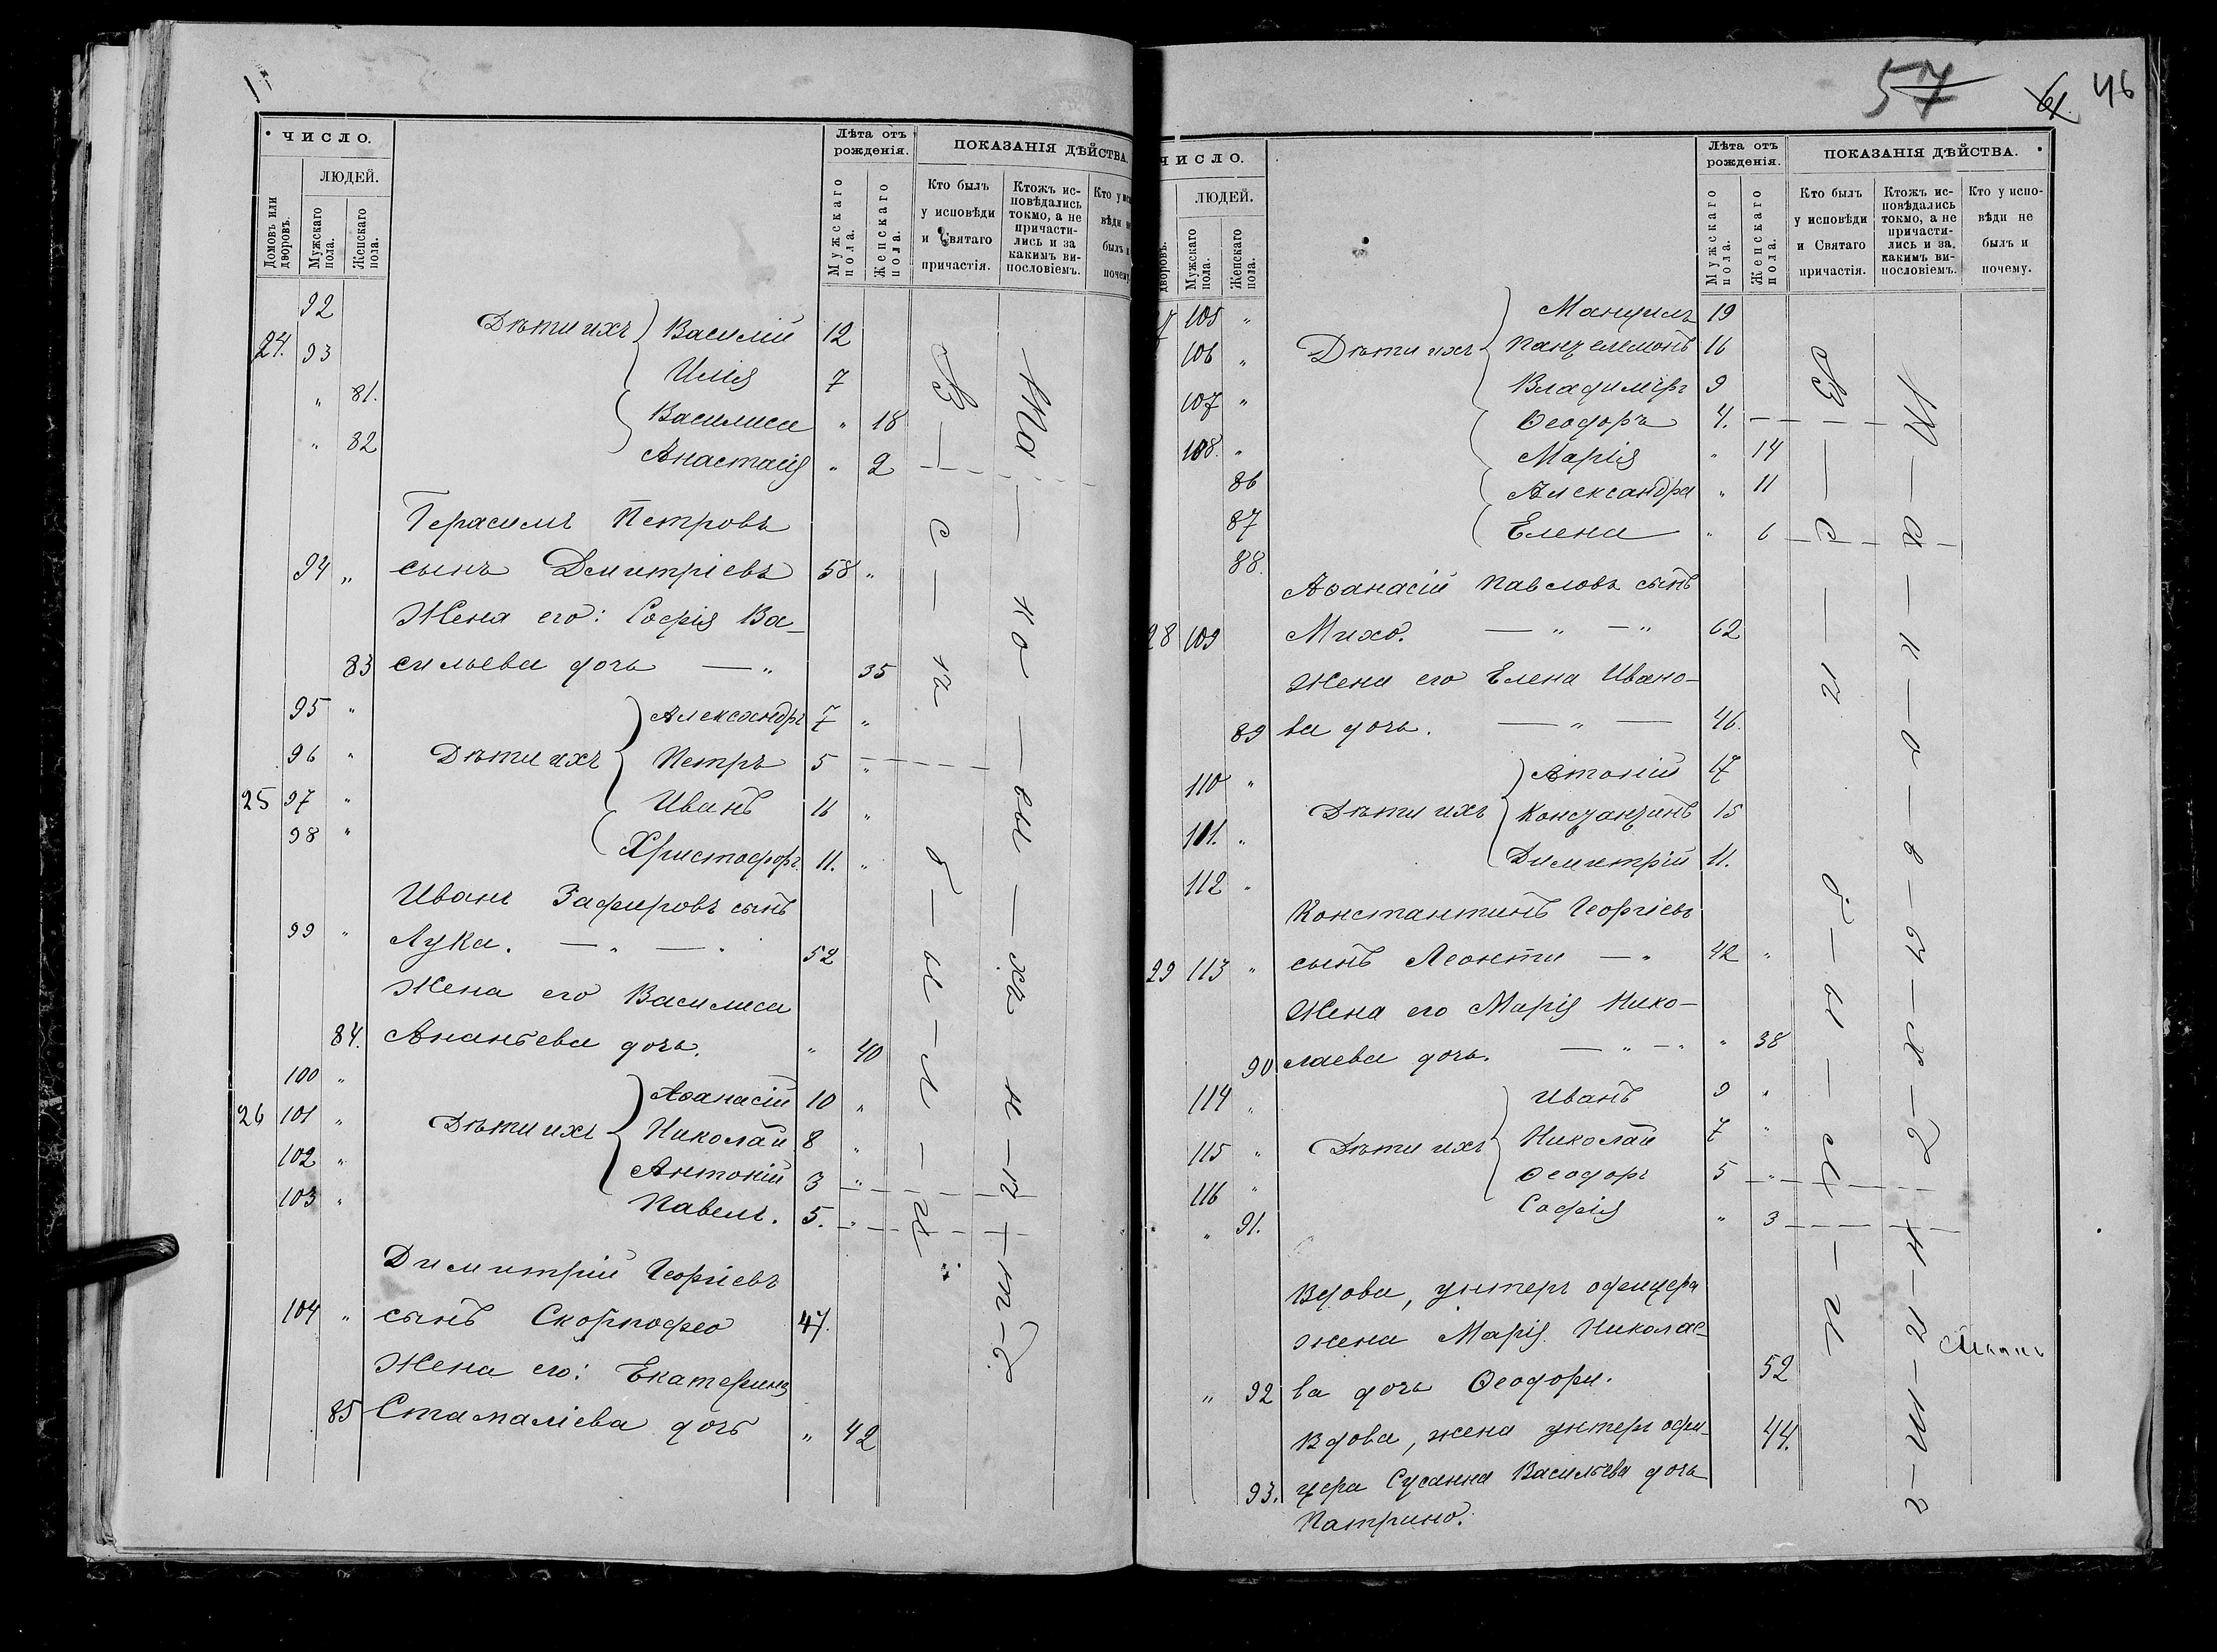 ЧИСЛО.
ЛЮДЕЙ.
Домовъ или дворовъ.
Мужскаго пола.
Женскаго пола.
Лѣта отъ рожденія.
Мужскаго пола.
Женскаго пола.
ПОКАЗАНІЯ ДѢЙСТВА.
Кто былъ у исповѣди и Святаго причастія.
Ктожъ исповѣдались токмо, а не причастились и за какимъ виносло­віемъ.
92 Дѣти ихъ Василій 12
24. 93 Илія 7
" 81. Василиса " 18
" 82 Анастасія " 2
Герасимъ Петровъ
94 " сынъ Димитріевъ 58 "
Жена его: Софія Ва-
83 сильева дочь — " 35
95 " Александръ 7 "
96 " Дѣти ихъ Петръ 5 "
25 97 " Иванъ 16 "
98 " Христофоръ 11. "
Иванъ Зафировъ сынъ
99 " Лука. — " — " 52
Жена его Василиса
84. Ананьева дочь. " 40
100 " Аѳанасій 10 "
26 101 " Дѣти ихъ Николай 8 "
102 " Антоній 3 "
103 " Павелъ. 5. "
Димитрій Георгіевъ
104 " сынъ 47.
Жена его: Екатерина
85 Стаматіева дочь " 42
57
61. 46
ЧИСЛО.
дворовъ.
ЛЮДЕЙ.
Мужскаго пола.
Женскаго пола.
Лѣта отъ рожденія.
Мужскаго пола.
Женскаго пола.
ПОКАЗАНІЯ ДѢЙСТВА.
Кто былъ у исповѣди и Святаго причастія.
Ктожъ исповѣдались токмо, а не причастились и за какимъ виносло­віемъ.
Кто у исповѣди не былъ и почему.
105 " Мануилъ 19
106 " Дѣти ихъ Пантелемонъ 16
107 " Владиміръ 9
108. " Ѳеодоръ 4.
86 Марія " 14
87 Александра " 11
88. Елена " 6
Аѳанасій Павловъ сынъ
28 109 Михо. — " — " 62
Жена его Елена Ивано-
89 ва дочь. — " — 46.
110 " Антоній 17
111. " Дѣти ихъ Константинъ 15
112 " Димитрій 11.
Константинъ Георгіевъ
29 113 " сынъ Леонти — " 42 "
Жена его Марія Нико-
90 лаева дочь. — " — " " 38
114 " Иванъ 9 "
115 " Дѣти ихъ Николай 7 "
116 " Ѳеодоръ 5 "
" 91. Софія " 3
Вдова, унтеръ офицера
жена Марія Николае-
" 92 ва дочь Ѳеодори. 52
Вдова, жена унтеръ офи- 44.
93. цера Сусанна Васильева дочь
Патрино.